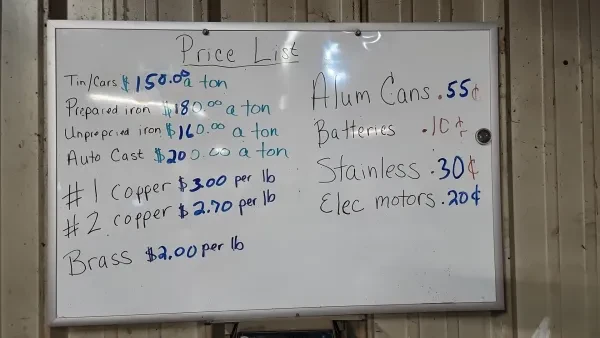 Price List
Tin/Cars $150.00 a ton
Prepared iron $180.00 a ton
Unprepared iron $160.00 a ton
Auto Cast $200.00 a ton
#1 copper $3.00 per lb
#2 copper $2.70 per lb
Brass $2.00 per lb
Alum Cans .55¢
Batteries .10¢
Stainless .30¢
Elec motors .20¢